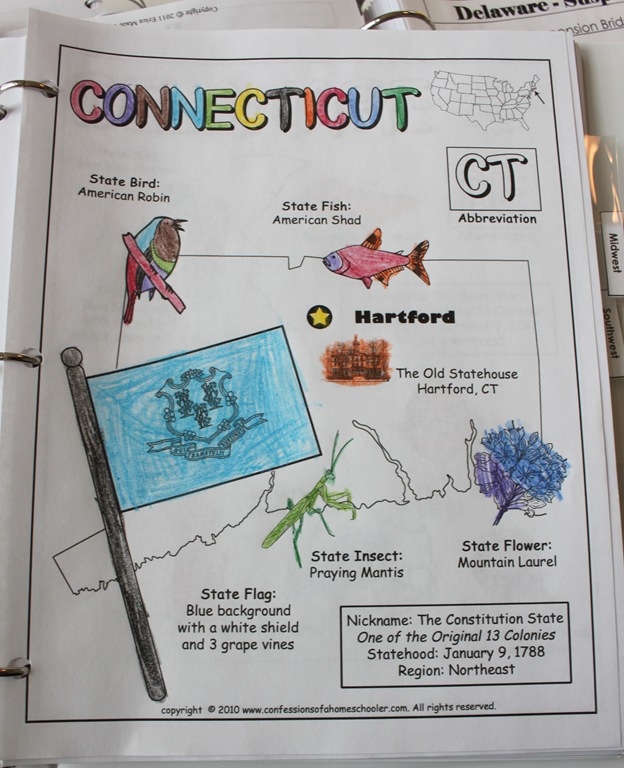 Copyright © 2011 Erica
Delaware - Susp
ension Brid
CONNECTICUT
CT
Abbreviation
State Bird:
American Robin
State Fish:
American Shad
Midwest
Southwest
Hartford
The Old Statehouse
Hartford, CT
State Insect:
Praying Mantis
State Flower:
Mountain Laurel
State Flag:
Blue background
with a white shield
and 3 grape vines
Nickname: The Constitution State
One of the Original 13 Colonies
Statehood: January 9, 1788
Region: Northeast
copyright © 2010 www.confessionsofahomeschooler.com. All rights reserved.